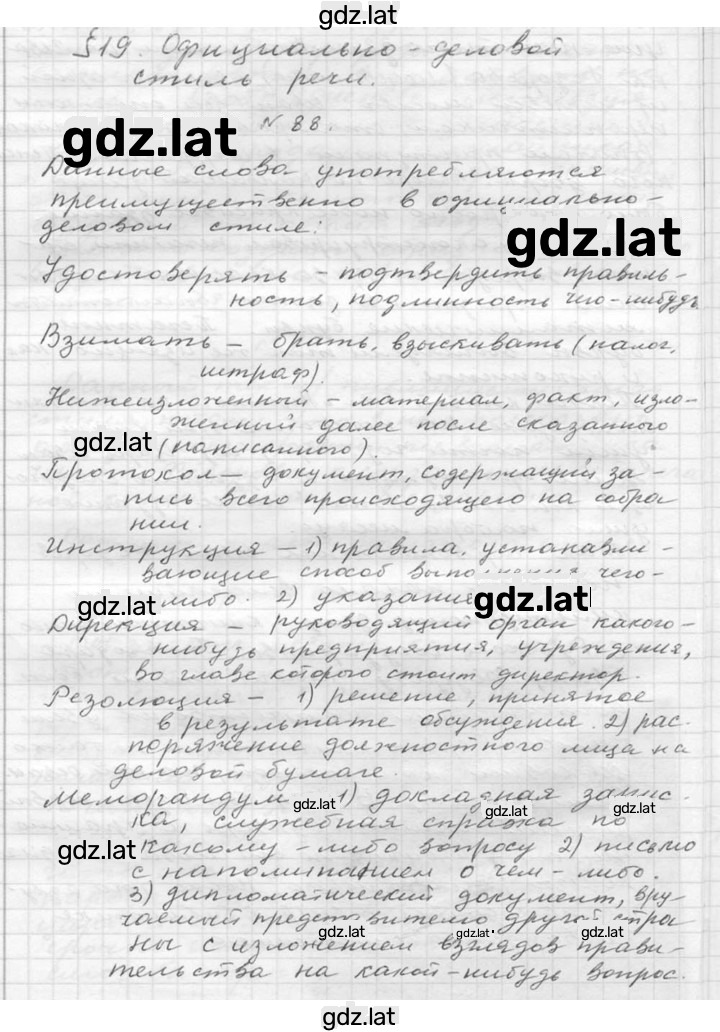 gdz.lat
§19. Официально-деловой
стиль речи.
№ 88.
gdz.lat
Данные слова употребляются
преимущественно в официально-
деловом стиле:
gdz.lat
Удостоверять - подтвердить правиль-
ность, подлинность чего-нибудь.
Взимать - брать, взыскивать (налог,
штраф).
Нижеизложенный - материал, факт, изло-
женный далее после сказанного
gdz.lat (написанного).
Протокол - документ, содержащий за-
пись всего происходящего на собра
нии.
Инструкция - 1) правила, устанавли-
вающие способ выполнения чего-
gdz.lat либо. 2) указания gdz.lat
Дирекция - руководящий орган какого-
нибудь предприятия, учреждения,
во главе которого стоит директор.
Резолюция - 1) решение, принятое
в результате обсуждения. 2) рас-
поряжение должностного лица на
деловой бумаге.
Меморандум gdz.lat 1) докладная запис-
gdz.lat gdz.lat
ка, служебная справка по
gdz.lat какому-либо вопросу 2) письмо
с напоминанием о чем-либо.
3) дипломатический документ, вру-
чаемый представителю другой стра
gdz.lat gdz.lat gdz.lat
ны с изложением взглядов прави-
тельства на какой-нибудь вопрос.
gdz.lat